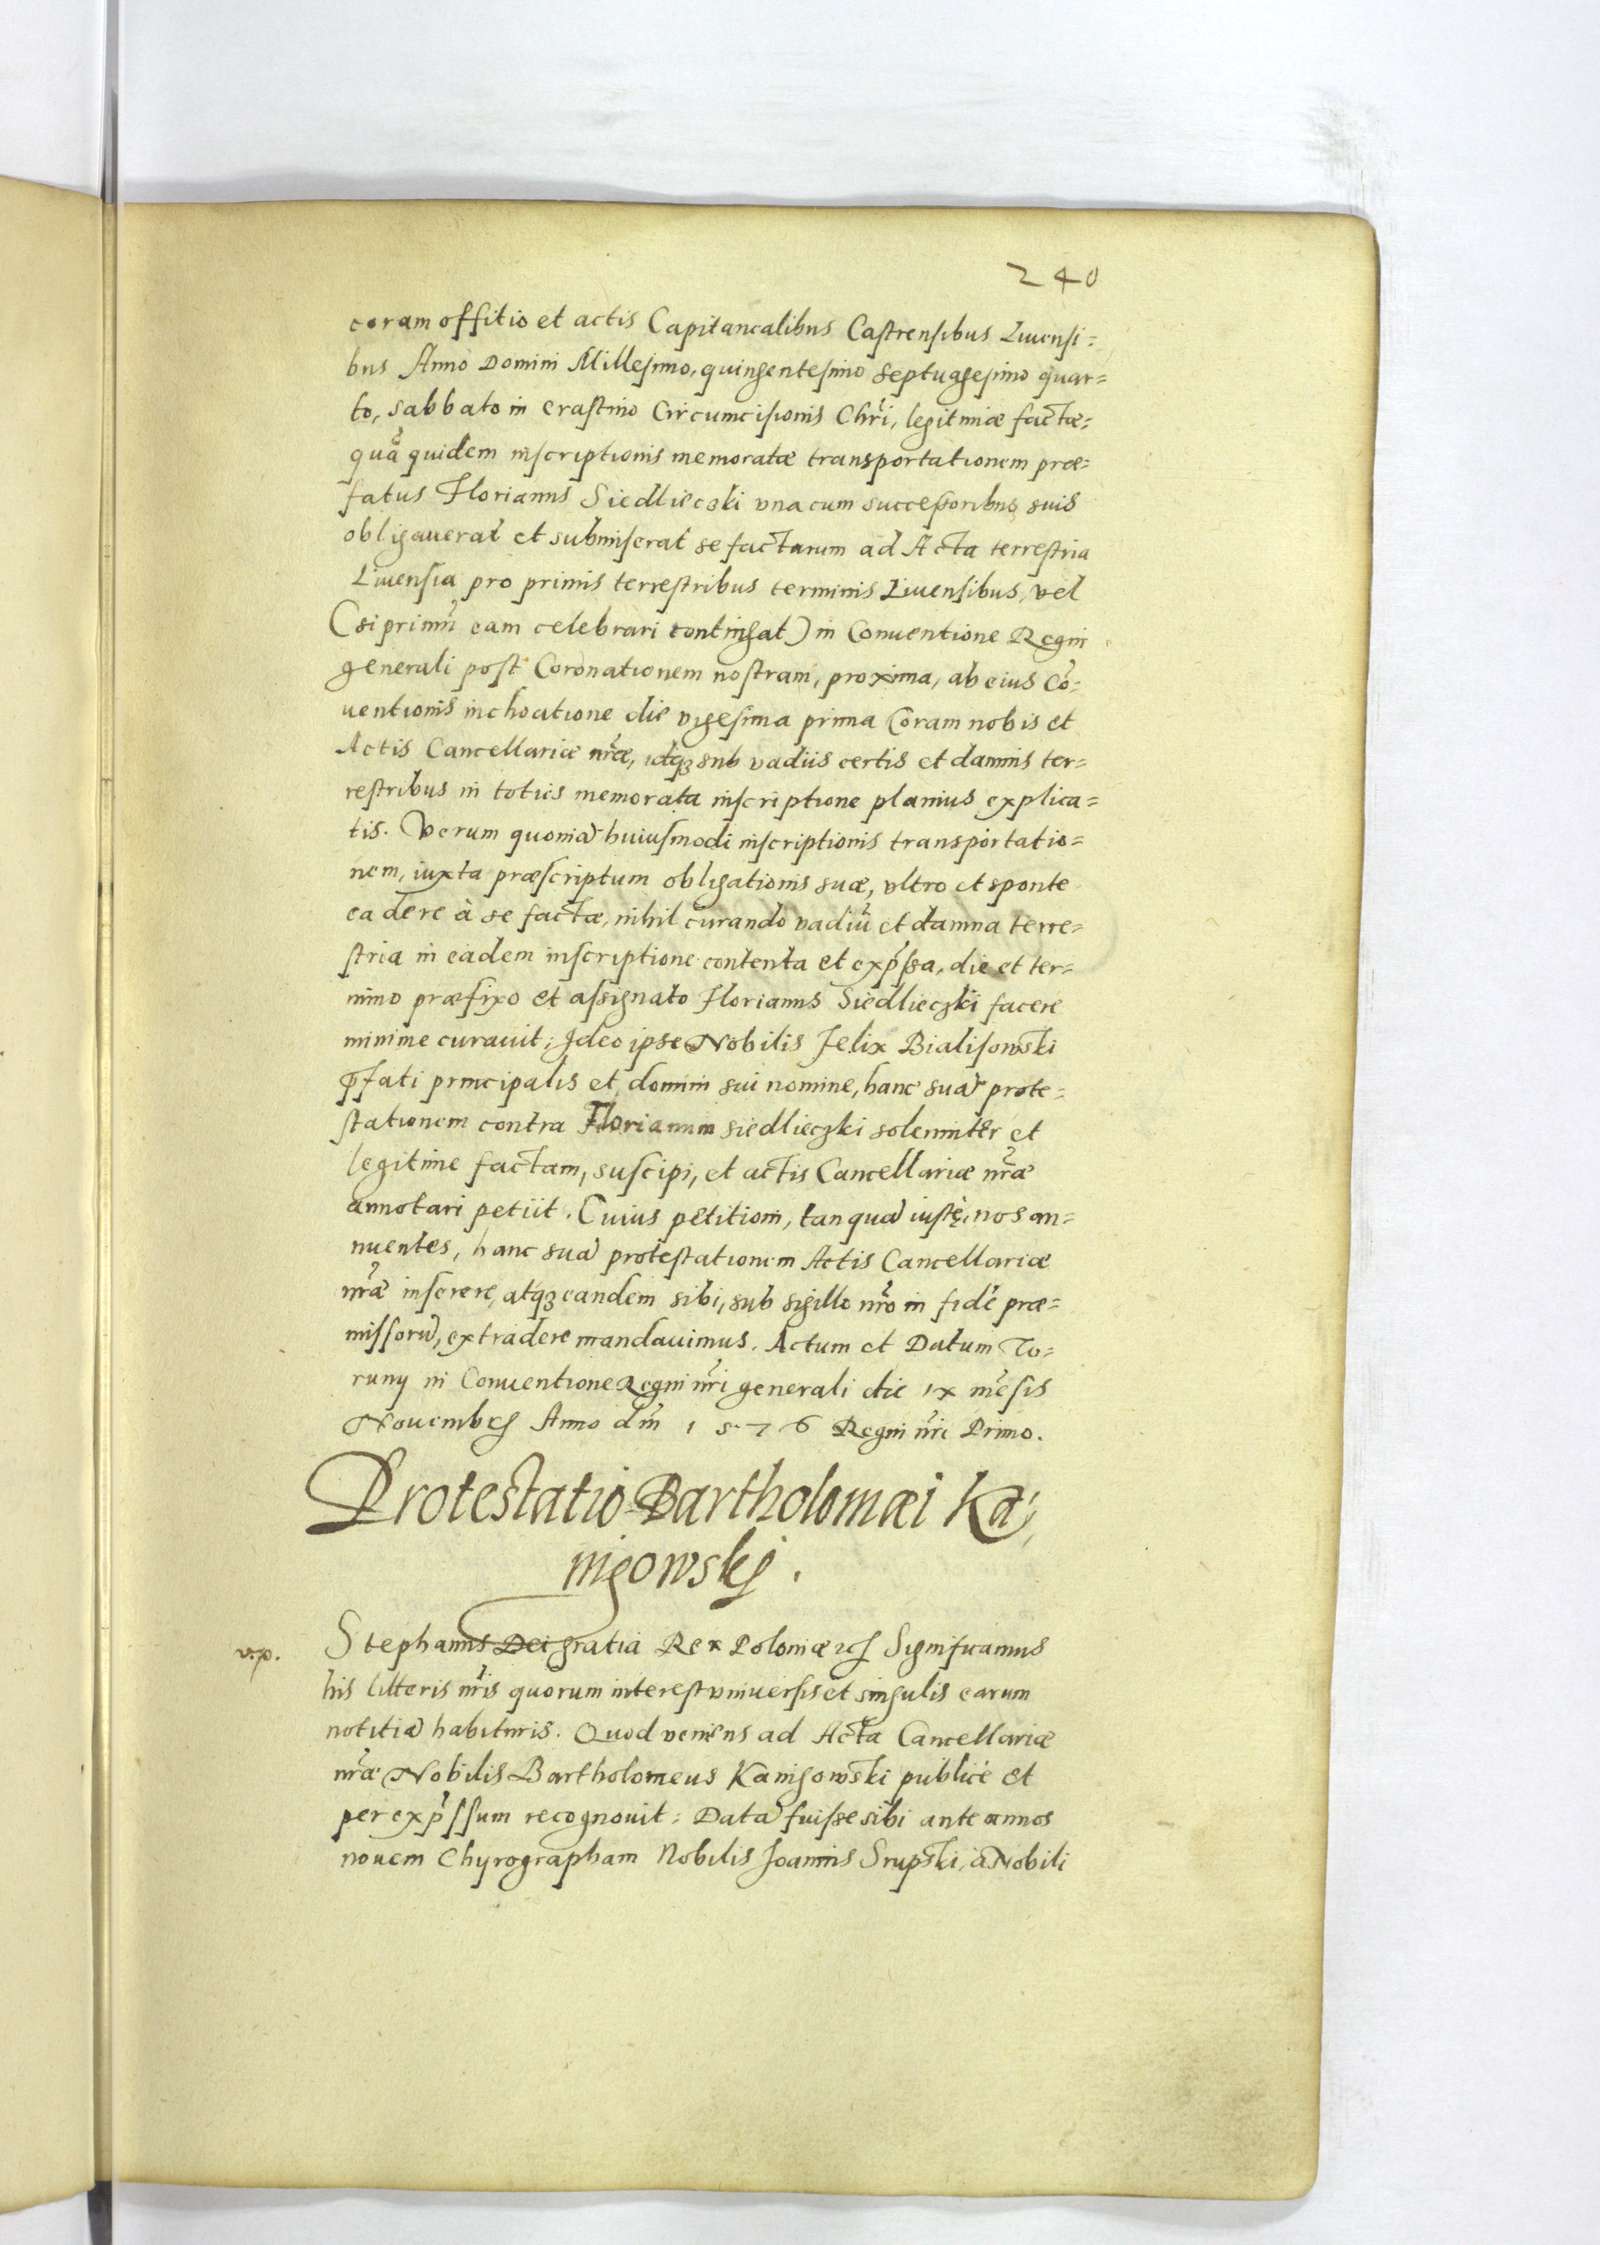 240
coram offitio et actis Capitanealibus Castrensibus Liuensi=
bus Anno Domini Millesimo, quingentesimo septuagesimo quar=
to, sabbato in crastino Circumcisionis Chri, legitimæ factæ=
quã quidem inscriptionis memoratæ transportationem præ=
fatus Florianus Siedlieczki vna cum successoribus suis
obligauerat et submiserat se facturum ad Acta terrestria
Liuensia pro primis terrestribus terminis Liuensibus, vel
(si primũ eam celebrari contingat) in Conuentione Regni
generali post Coronationem nostram, proxima, ab eius Cõ=
uentionis inchoatione die vigesima prima Coram nobis et
Actis Cancellariæ nræ, idqȝ sub vadiis certis et damnis ter=
restribus in toties memorata inscriptione planius explica=
tis. Verum quoniã huiusmodi inscriptionis transportatio=
nem, iuxta præscriptum obligationis suæ, vltro et sponte
ea de re à se factæ, nihil curando vadiũ et damna terre=
stria in eadem inscriptione contenta et exp̃ssa, die et ter=
mino præfixo et assignato Florianus Siedlieczki facere
minime curauit; Ideo ipse Nobilis Felix Bialisowski
p̃fati principalis et domini sui nomine, hanc suã prote=
stationem contra Florianum Siedlieczki solenniter et
legitime factam, suscipi, et actis Cancellariæ nr̃æ
annotari petiit. Cuius petitioni, tanquã iustę, nos an=
nuentes, hanc suã protestationem Actis Cancellariæ
nr̃æ inserere, atqȝ eandem sibi, sub sigillo nr̃o in fidẽ præ=
missorũ, extradere mandauimus. Actum et Datum To=
runij in Conuentione Regni nr̃i generali die ix mẽsis
Nouembris Anno dñi 1576 Regni nr̃i Primo.
Protestatio Bartholomæi Ka=
nigowskj.
v.p.
Stephanus Dei gratia Rex Poloniæ etc Significamus
his litteris nr̃is quorum interest vniuersis et singulis earum
notitiã habituris. Quod veniens ad Acta Cancellariæ
nr̃æ Nobilis Bartholomeus Kanigowski publicè et
per exp̃ssum recognouit: Datã fuisse sibi ante annos
nouem Chyrographam Nobilis Joannis Srupski, à Nobili